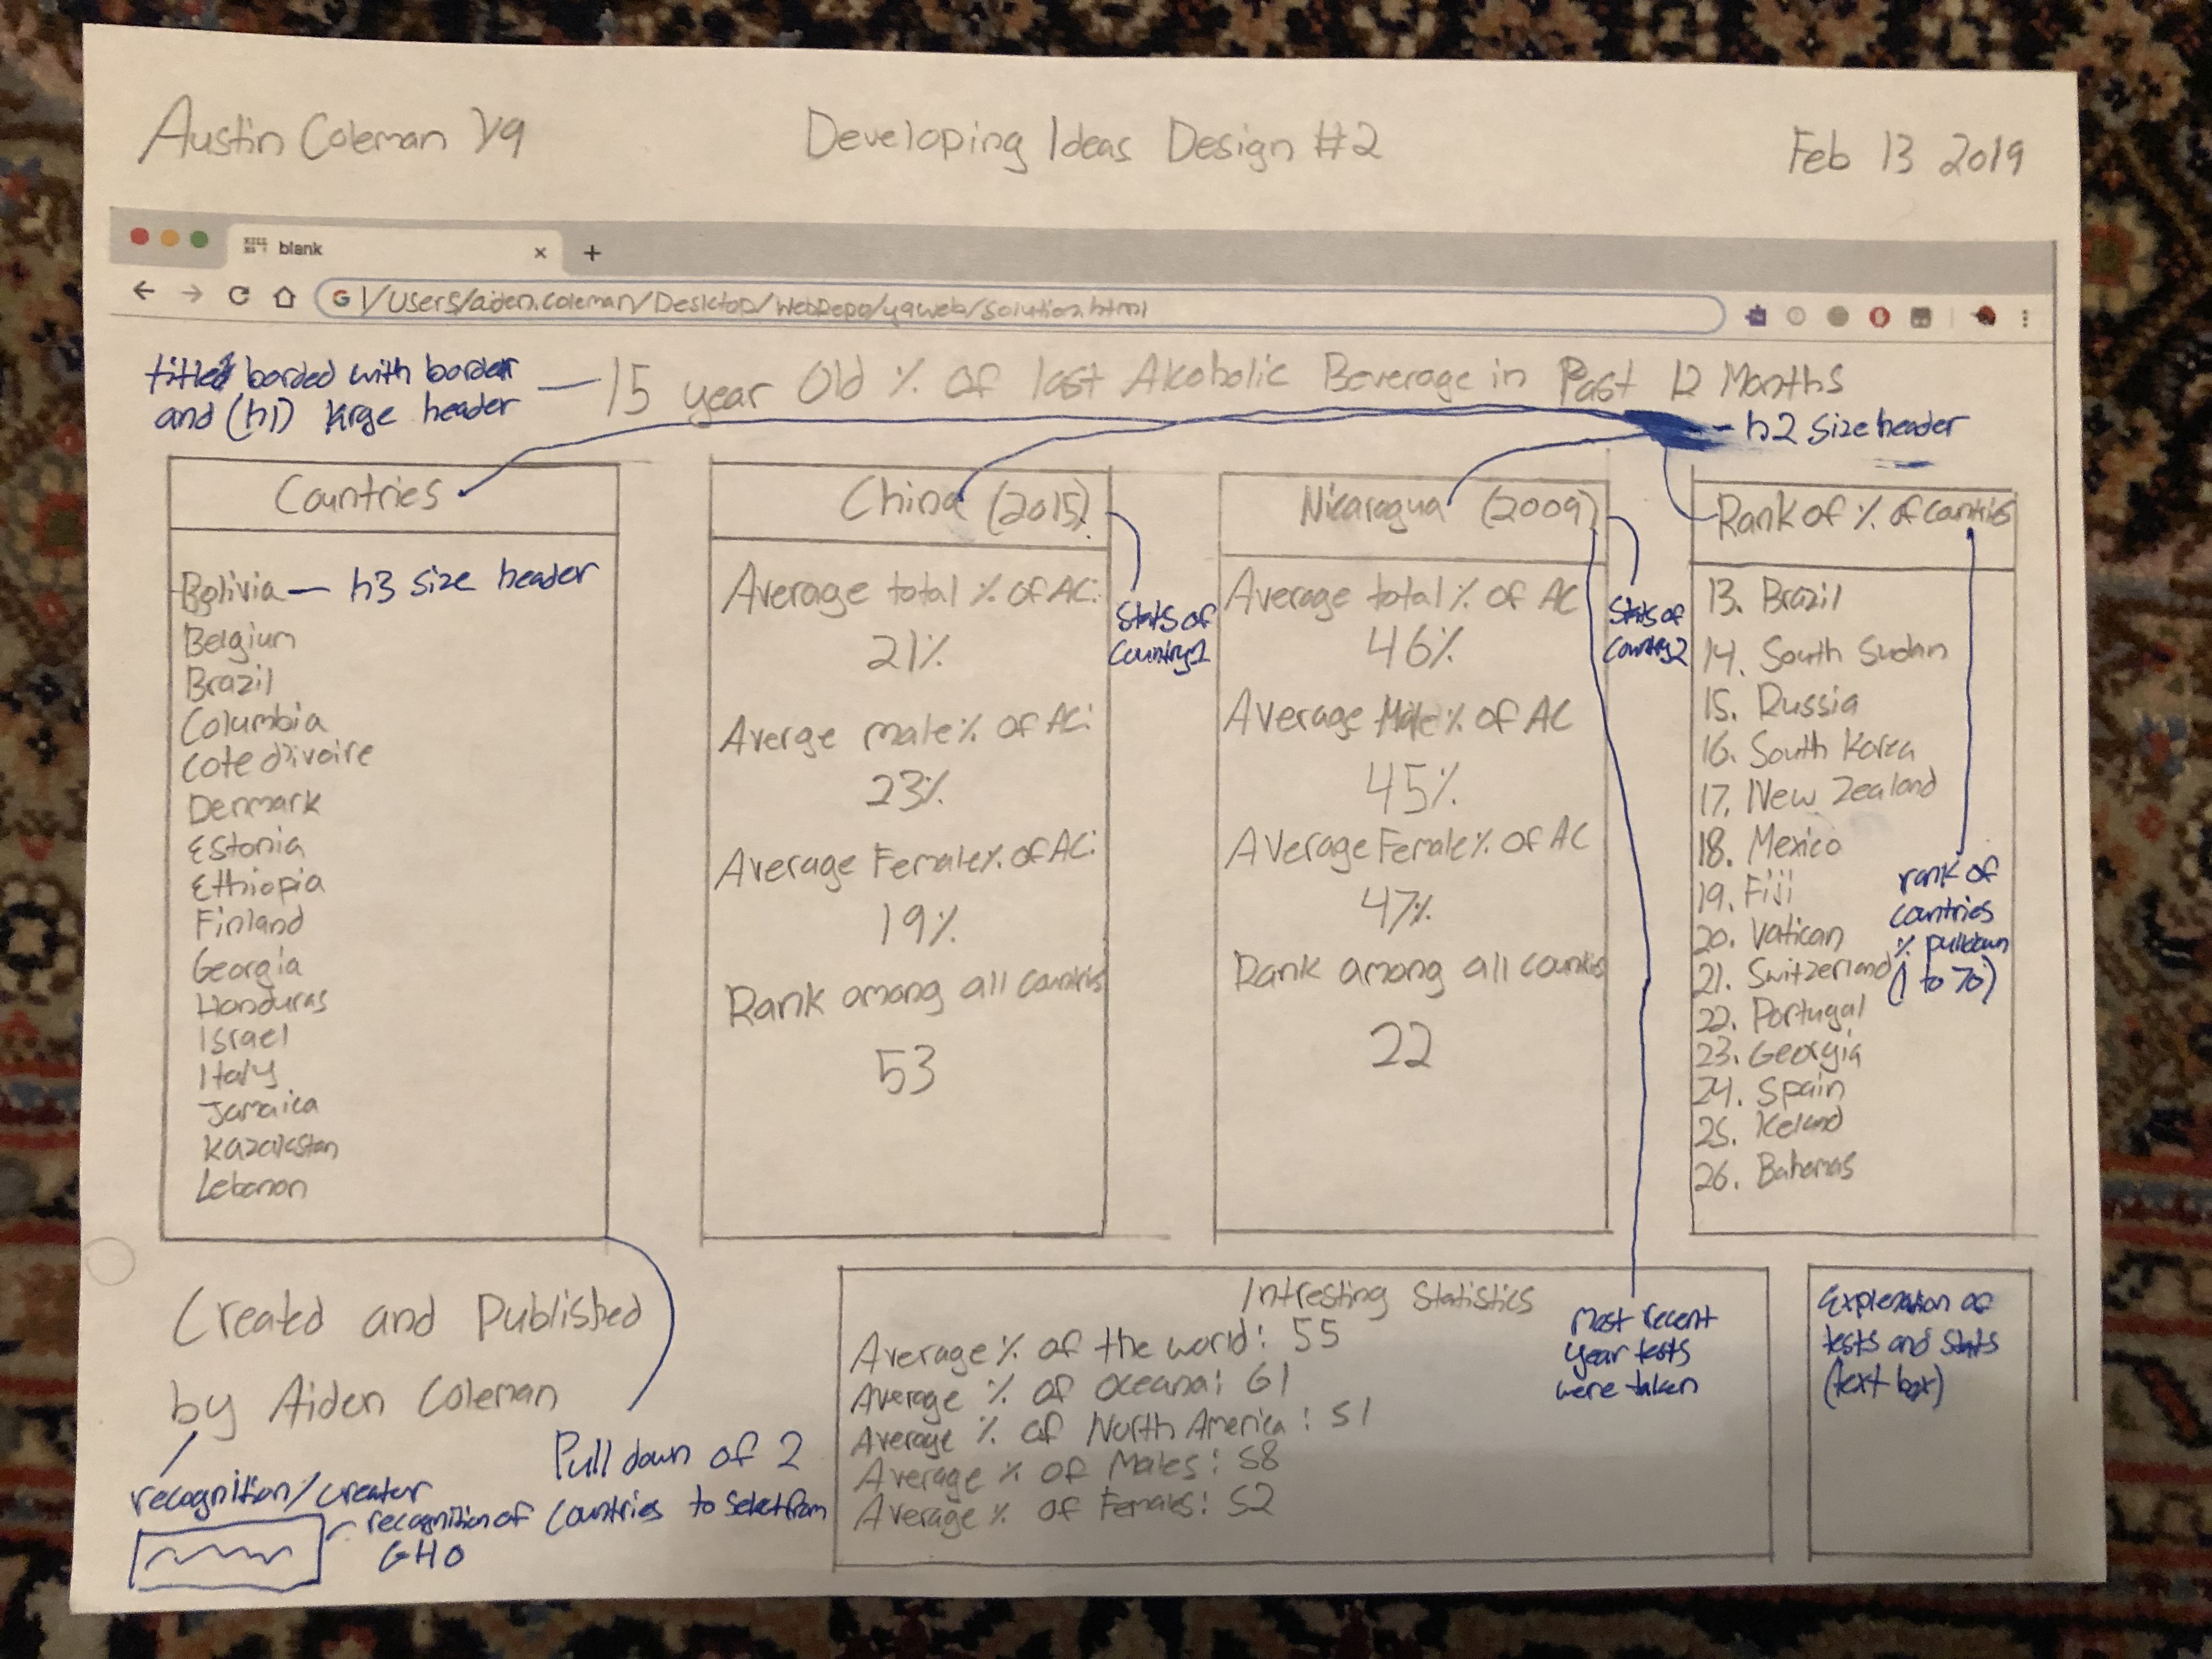 Austin Coleman Y9
Developing Ideas Design #2
Feb 13 2019
blank
/Users/aiden.coleman/Desktop/WebRepo/y9web/solution.html
titled borded with border
and (h1) large header
15 year Old % of last Alcoholic Beverage in Past 12 Months
h2 size header
Countries
Bolivia
h3 size header
Belgium
Brazil
Columbia
Cote d'ivoire
Denmark
Estonia
Ethiopia
Finland
Georgia
Honduras
Israel
Italy
Jamaica
Kazakstan
Lebanon
China (2015)
Average total % of AC:
21%
Averge male % of AC:
23%
Average Female % of AC:
19%
Rank among all countries
53
Stats of
Country 1
Nicaragua (2009)
Average total % of AC
46%
Average Male % of AC
45%
Average Female % of AC
47%
Rank among all countries
22
Stats of
Country 2
Rank of % of countries
13. Brazil
14. South Sudan
15. Russia
16. South Korea
17. New Zealand
18. Mexico
19. Fiji
20. Vatican
21. Switzerland
22. Portugal
23. Georgia
24. Spain
25. Iceland
26. Bahamas
rank of
countries
% pulldown
(1 to 70)
Created and Published
by Aiden Coleman
recognition/creator
recognition of
GHO
Pull down of 2
countries to select from
Intresting Statistics
Average % of the world: 55
Average % of Oceana: 61
Average % of North America: 51
Average % of Males: 58
Average % of Females: 52
Most recent
year tests
were taken
Explenation of
tests and stats
(text box)